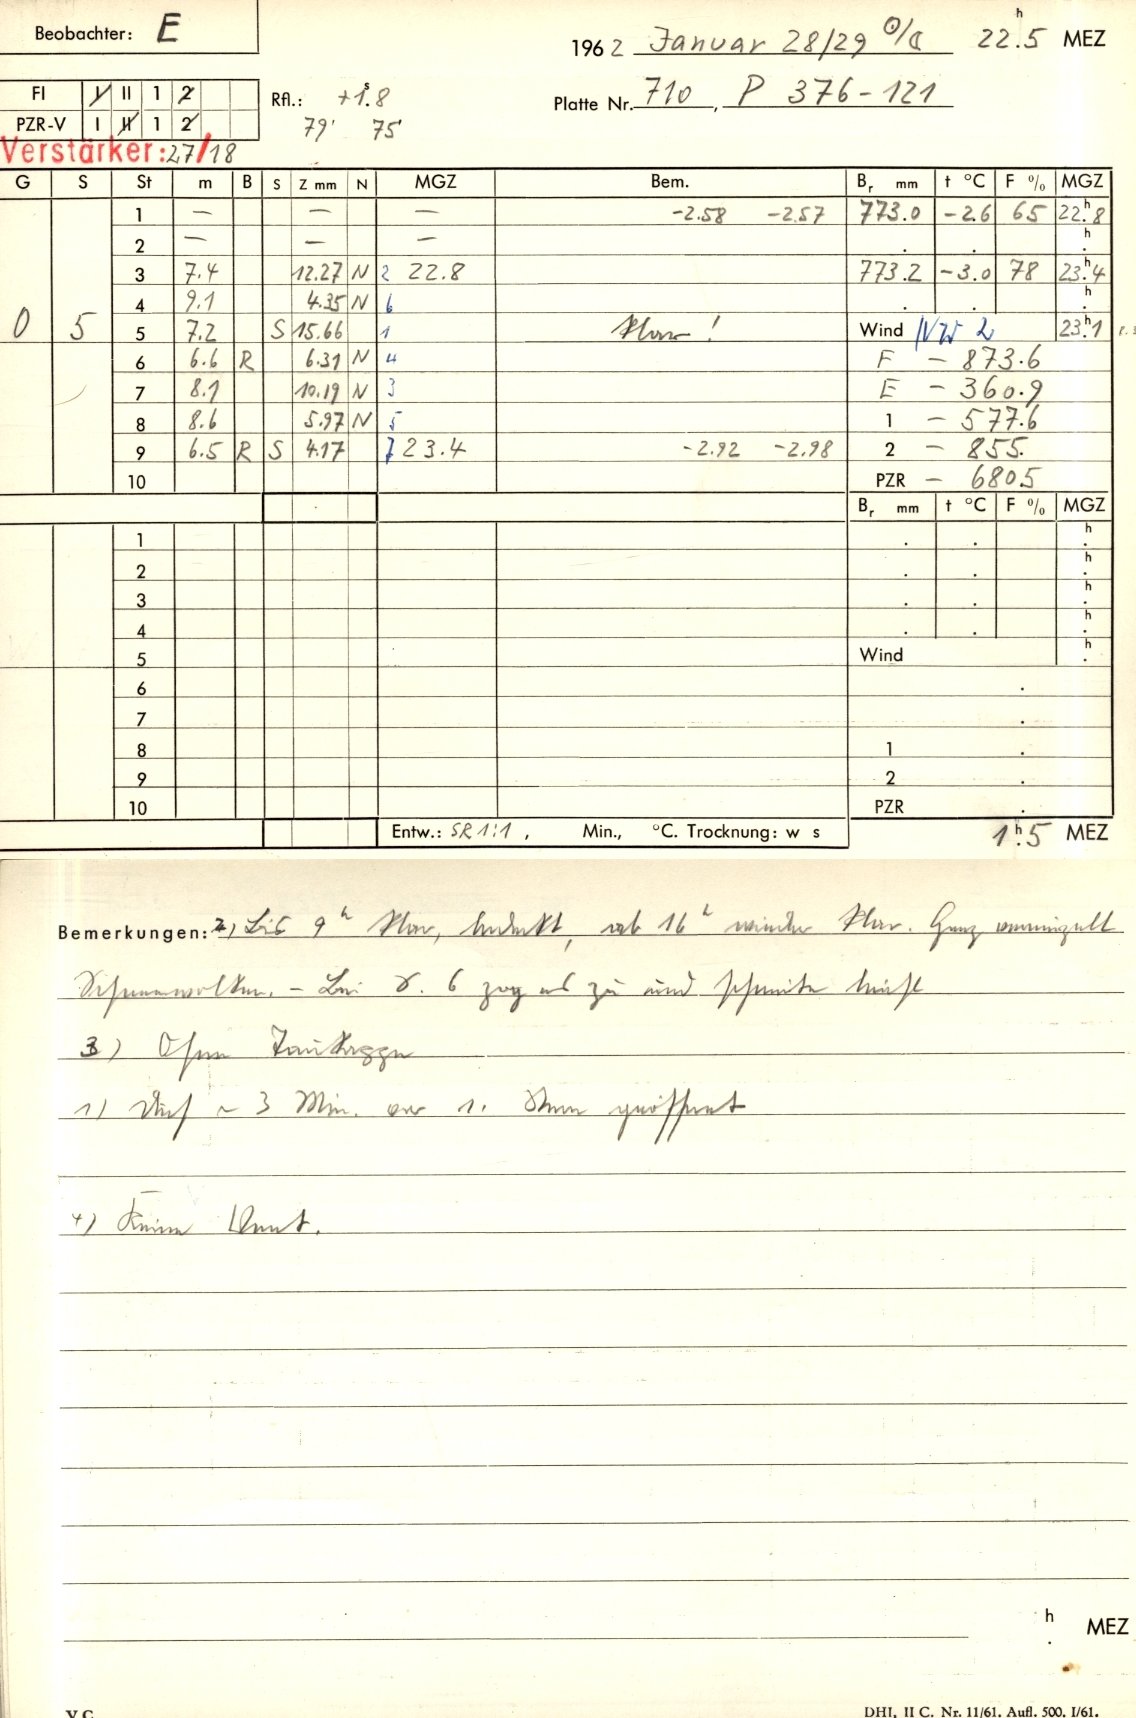 Beobachter: E
1962 Januar 28/29 ☉/☾ 22ʰ.5 MEZ
FI I II 1 2
PZR-V I II 1 2
Rfl.: +1ˢ.8
79' 75'
Platte Nr. 710, P 376-121
Verstärker: 27/18
G S St m B S Z mm N MGZ Bem. Bᵣ mm t °C F % MGZ
1 — — — -2.58 -2.57 773.0 -2.6 65 22ʰ.8
2 — — — . . ʰ.
3 7.4 12.27 N 2 22.8 773.2 -3.0 78 23ʰ.4
4 9.1 4.35 N 6 . . ʰ.
0 5 5 7.2 S 15.66 1 klar! Wind NW 2 23ʰ.1
6 6.6 B R 6.31 N 4 F - 873.6
7 8.1 10.19 N 3 E - 360.9
8 8.6 5.97 N 5 1 - 577.6
9 6.5 R S 4.17 7 23.4 -2.92 -2.98 2 - 855.
10 PZR - 6805
Bᵣ mm t °C F % MGZ
1 . . ʰ.
2 . . ʰ.
3 . . ʰ.
4 . . ʰ.
5 Wind ʰ.
6 .
7 .
8 1 .
9 2 .
10 PZR .
Entw.: SR 1:1, Min., °C. Trocknung: w s
1ʰ.5 MEZ
Bemerkungen: 2) Bis 9ʰ klar, bedeckt, ab 16ʰ wieder klar. Ganz vereinzelt
. – Bei . 6 zog es zu und
3) Ohne
1) Dach ~ 3 Min. vor 1. Stern geöffnet
4) Keine
ʰ. MEZ
V.C.
DHI, II C. Nr. 11/61. Aufl. 500. I/61.